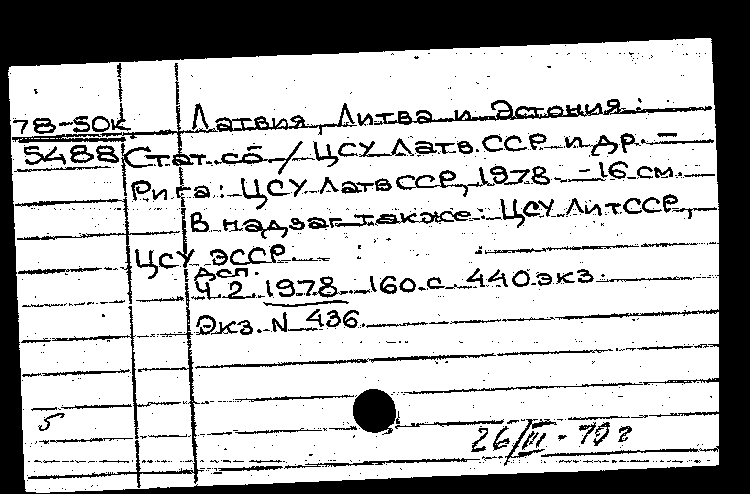 78-50к Латвия, Литва и Эстония:
5488 Стат. сб / ЦСУ Латв. ССР и др. –
Рига: ЦСУ Латв ССР, 1978. – 16 см.
В надзаг также: ЦСУ Лит ССР,
ЦСУ ЭССР.
ДСП.
Ч. 2. 1978 160.с. 440 экз.
Экз. N 436.
5
26/III - 79 г